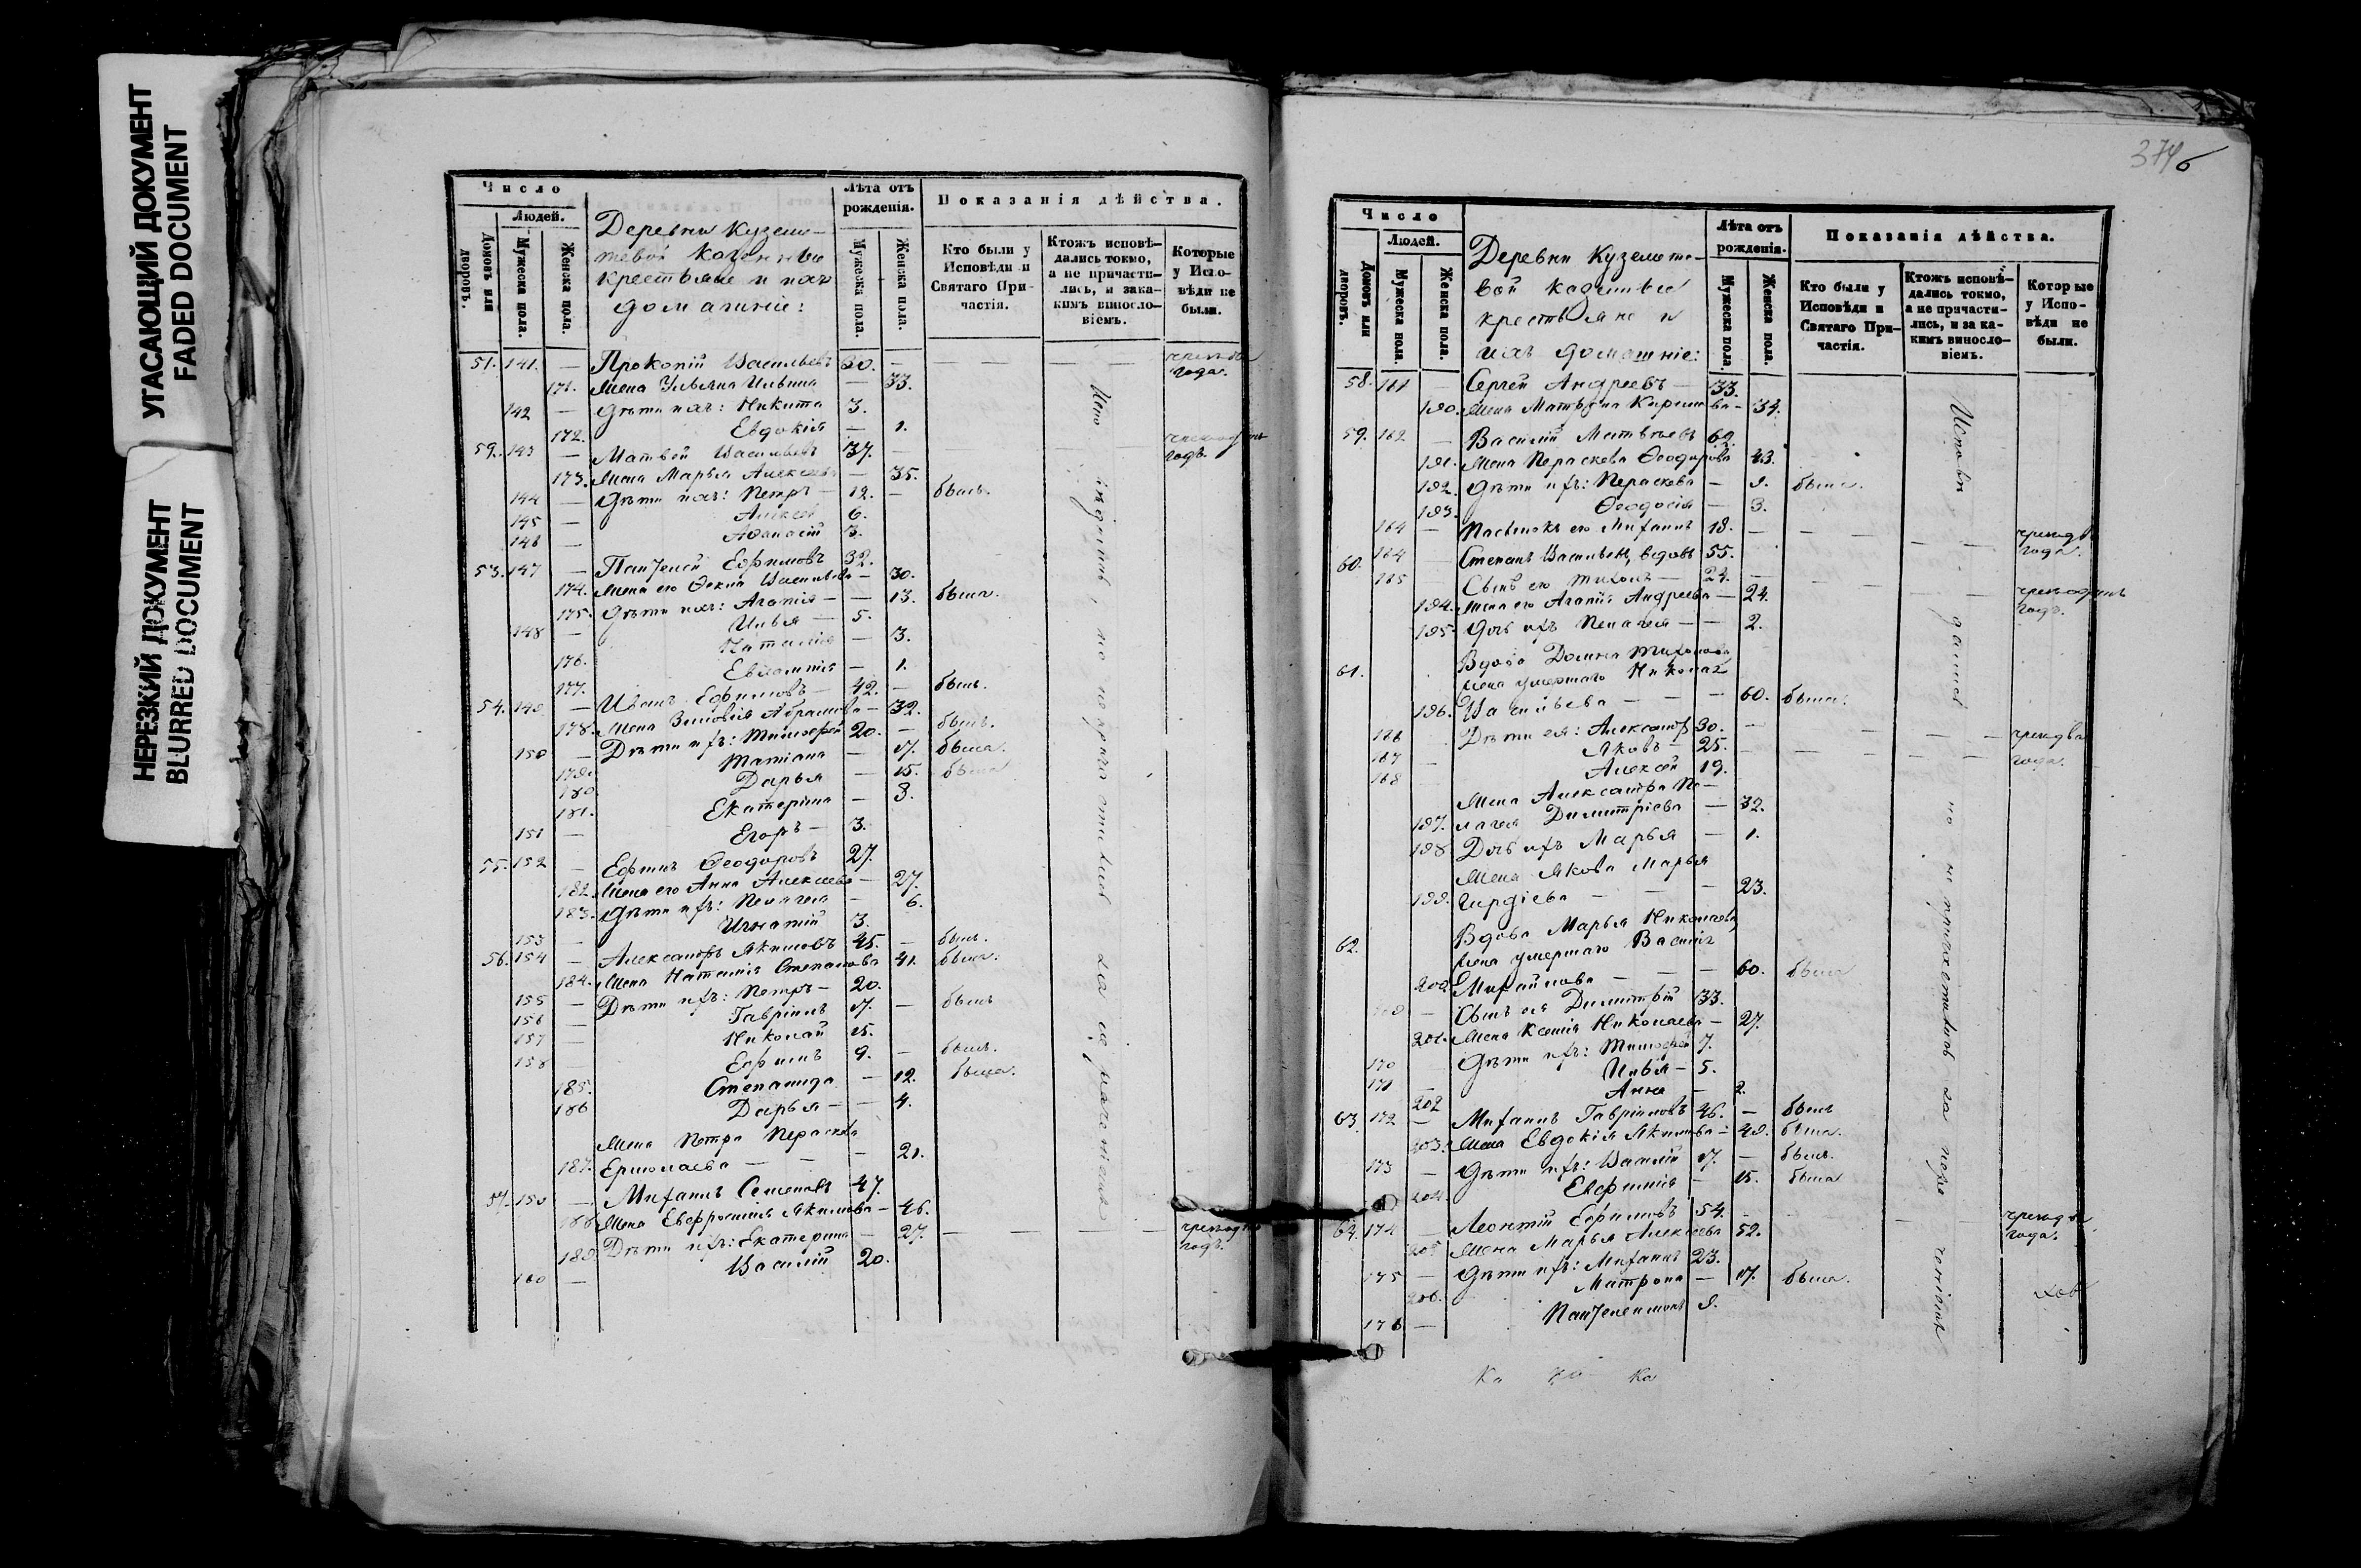 УГАСАЮЩИЙ ДОКУМЕНТ
FADED DOCUMENT
НЕРЕЗКИЙ ДОКУМЕНТ
BLURRED DOCUMENT
Число
Людей.
Домовъ или дворовъ.
Мужеска пола.
Женска пола.
Деревни
крестьяне и ихъ
домашніе:
Лѣта отъ рожденія.
Мужеска пола.
Женска пола.
Показанія дѣйства.
Кто были у Исповѣди и Святаго Причастія.
Ктожъ исповѣдались токмо, а не причастились, и закакимъ винословіемъ.
Которые у Исповѣди не были.
51. 141. — Прокопій Васильевъ 30. —
171. Жена Ульяна Ильина — 33.
142 — Дѣти ихъ: Никита 3.
172. Евдокія — 1.
143 — Матвей Васильевъ 37. —
173. Жена Марья Алексеева — 35.
144 — Дѣти ихъ: Петръ — 12. — былъ.
145 — Алексей 6.
146 — Афанасій 3.
53. 147 — Ефимовъ 32.
174. Жена его Фекла Васильева — 30.
175. Дѣти ихъ: Агапія — — 13. была.
148 — Илья — 5.
176. Наталія — 3.
177. Евлампія — 1.
54. 149 — Иванъ Ефимовъ — 42. — былъ.
178. Жена Зиновія Абрамова — 32.
150 — Дѣти ихъ: Тимофей 20. — былъ.
179. Татіана — 17. была.
180 Дарья — 15. была
181. Екатерина — 8.
151 — Егоръ — 3.
55. 152 — Ефимъ Феодоровъ 27.
182. Жена его Анна Алексеева — 27.
183. Дѣти ихъ: Пелагея — 6.
153 — Игнатій 3.
56. 154 — Александръ Якимовъ 45. — былъ.
184. Жена Наталія Степанова 41. была.
155 — Дѣти ихъ: Петръ — 20.
156 — Гавріилъ 17. — былъ
157 — Николай 15.
158 — Ефимъ 9. — былъ.
185. Степанида — 12. была.
186 Дарья — — 4.
Жена Петра Параскева
187. Ермолаева — — — 21.
57. 159 — Михаилъ Семеновъ 47.
188 Жена Евфросинія Якимова — 46.
189 Дѣти ихъ: Екатерина — 27. — — —
160 — Василій 20.
374б
Число
Людей.
Домовъ или дворовъ.
Мужеска пола.
Женска пола.
Деревни
крестьяне и
ихъ домашніе:
Лѣта отъ рожденія.
Мужеска пола.
Женска пола.
Показанія дѣйства.
Кто были у Исповѣди и Святаго Причастія.
Ктожъ исповѣдались токмо, а не причастились, и за какимъ винословіемъ.
Которые у Исповѣди не были.
58. 161 — Сергей Андреевъ — 33.
190. Жена Матрона — 34.
59. 162 — Василій Матвѣевъ 62.
191. Жена Параскева Феодорова 43.
192. Дѣти ихъ: Параскева — 9. была.
193. Феодосія — 3.
164 — Пасынокъ его Михаилъ 18. — — —
60. 164 Степанъ Васильевъ, вдовъ 55.
165 Сынъ его Тихонъ — 24. —
194. Жена его Агапія Андреева — 24.
195. Дочь ихъ Пелагея — — 2.
61. Вдова Домна Тихонова
жена умершаго Николая
196. Васильева — — — 60. была.
166 Дѣти ея: Александръ 30. —
167 — Яковъ — 25. — — —
168 Алексей 19.
Жена Александра Пе—
197. лагея Димитріева — 32.
198 Дочь ихъ Марья — 1.
Жена Якова Марья
199. — — — 23.
62. Вдова Марья Николаева,
жена умершаго Василія
200 Михайлова — — — 60. была
169 — Сынъ ея Димитрій 33.
201. Жена Ксенія Николаева — 27.
170 Дѣти ихъ: Тимофей 7.
171 — Илья — 5.
202 Анна — 2.
63. 172 — Михаилъ Гавриловъ 46. — былъ
203. Жена Евдокія Якимова — 49. была.
173 — Дѣти ихъ: Василій 17. — былъ.
204. Евфимія — 15. была
64. 174 — Леонтій Ефимовъ 54. —
205 Жена Марья Алексеева 52.
175 — Дѣти ихъ: Михаилъ 23.
206. Матрона — 17. была.
176 — Пантелеимонъ 9.